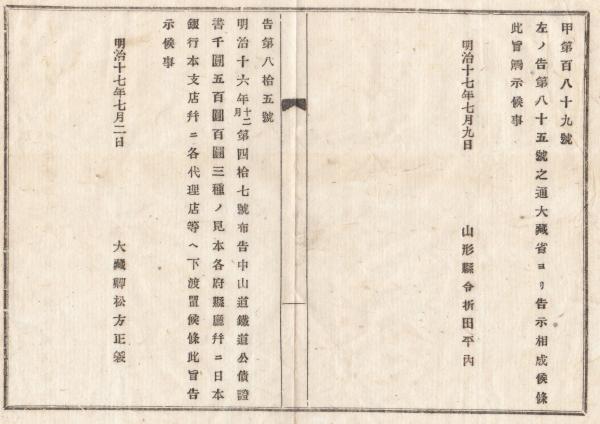 甲第百八十九號
左ノ告第八十五號之通大藏省ヨリ告示相成候條
此旨觸示候事
明治十七年七月九日
山形縣令折田平內
告第八拾五號
明治十六年十二月第四拾七號布告中山道鐵道公債證
書千圓五百圓百圓三種ノ見本各府縣廳幷ニ日本
銀行本支店幷ニ各代理店等ヘ下渡置候條此旨告
示候事
明治十七年七月二日
大藏卿松方正義